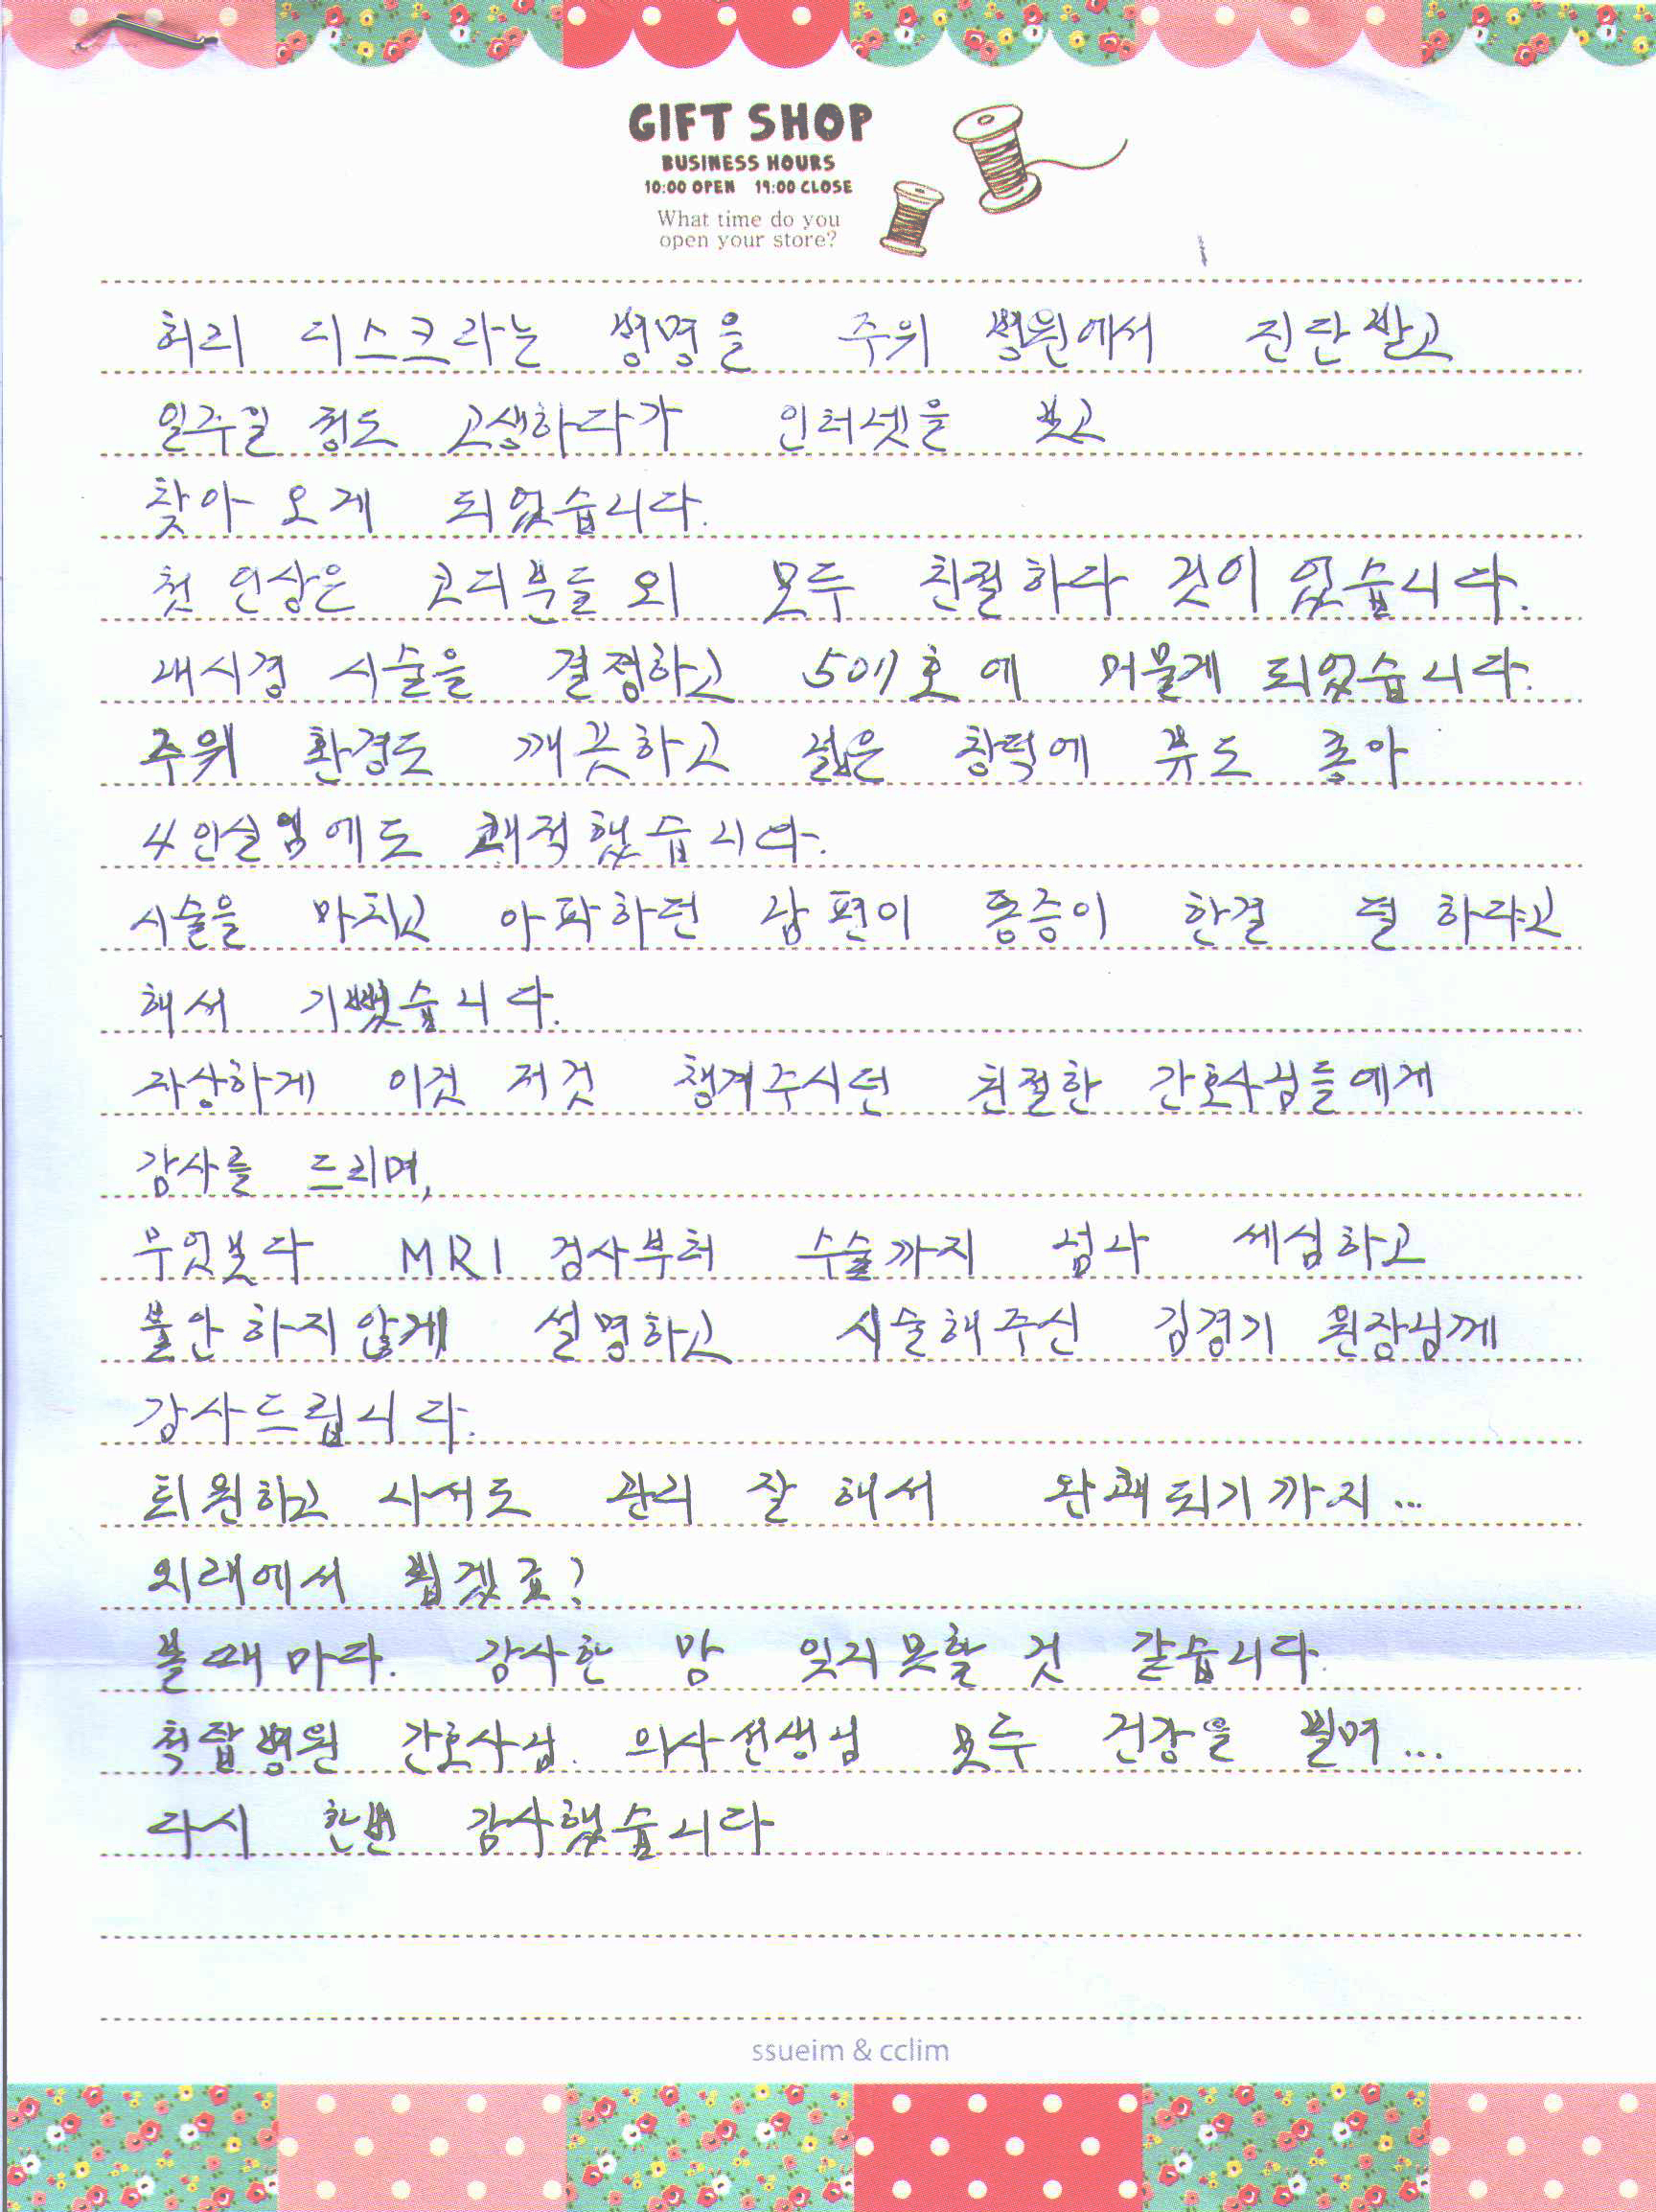 GIFT SHOP
BUSINESS HOURS
10:00 OPEN 19:00 CLOSE
What time do you
open your store?
허리 디스크라는 병명을 주위 병원에서 진단받고
일주일 정도 고생하다가 인터넷을 보고
찾아 오게 되었습니다.
첫 인상은 코디분들 외 모두 친절하다 것이 없습니다.
내시경 시술을 결정하고 501호에 머물게 되었습니다.
주위 환경도 깨끗하고 넓은 창턱에 뷰도 좋아
4인실임에도 쾌적했습니다.
시술을 마치고 아파하던 남편이 통증이 한결 덜 하라고
해서 기뻤습니다.
자상하게 이것 저것 챙겨주시던 친절한 간호사님들에게
감사를 드리며,
무엇보다 MRI 검사부터 수술까지 넘나 세심하고
불안하지않게 설명하고 시술해주신 김경기 원장님께
감사드립니다.
퇴원하고 나서도 관리 잘 해서 완쾌되기까지...
외래에서 뵙겠죠?
볼때마다. 감사한 맘 잊지못할 것 같습니다.
척탑병원 간호사님. 의사선생님 모두 건강을 빌며...
다시 한번 감사했습니다
ssueim & cclim